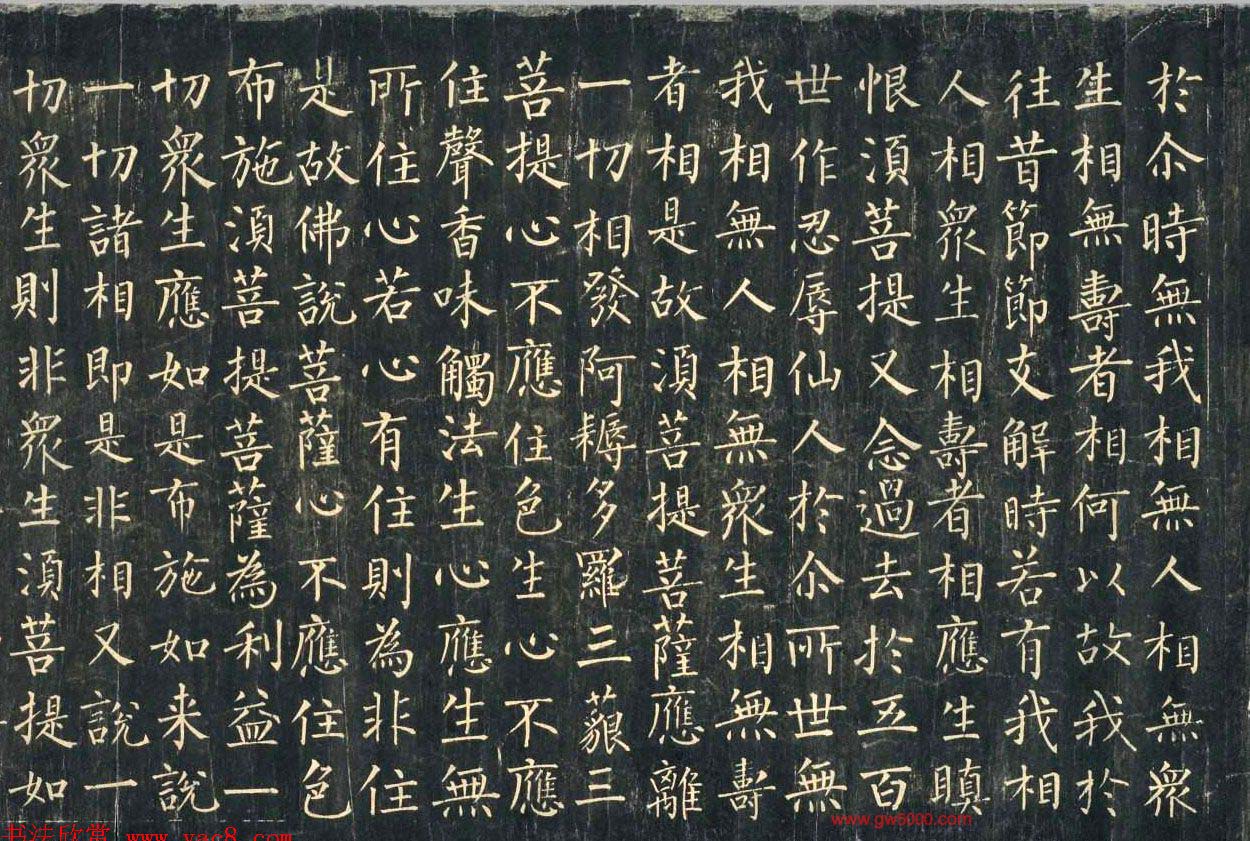 於尒時無我相無人相無衆
生相無壽者相何以故我於
往昔節節支解時若有我相
人相衆生相壽者相應生瞋
恨須菩提又念過去於五百
世作忍辱仙人於尒所世無
我相無人相無衆生相無壽
者相是故須菩提菩薩應離
一切相發阿耨多羅三藐三
菩提心不應住色生心不應
住聲香味觸法生心應生無
所住心若心有住則為非住
是故佛說菩薩心不應住色
布施須菩提菩薩為利益一
切衆生應如是布施如来說
一切諸相即是非相又說一
切衆生則非衆生須菩提如
www.gw5000.com
书法欣赏 www.yac8.com